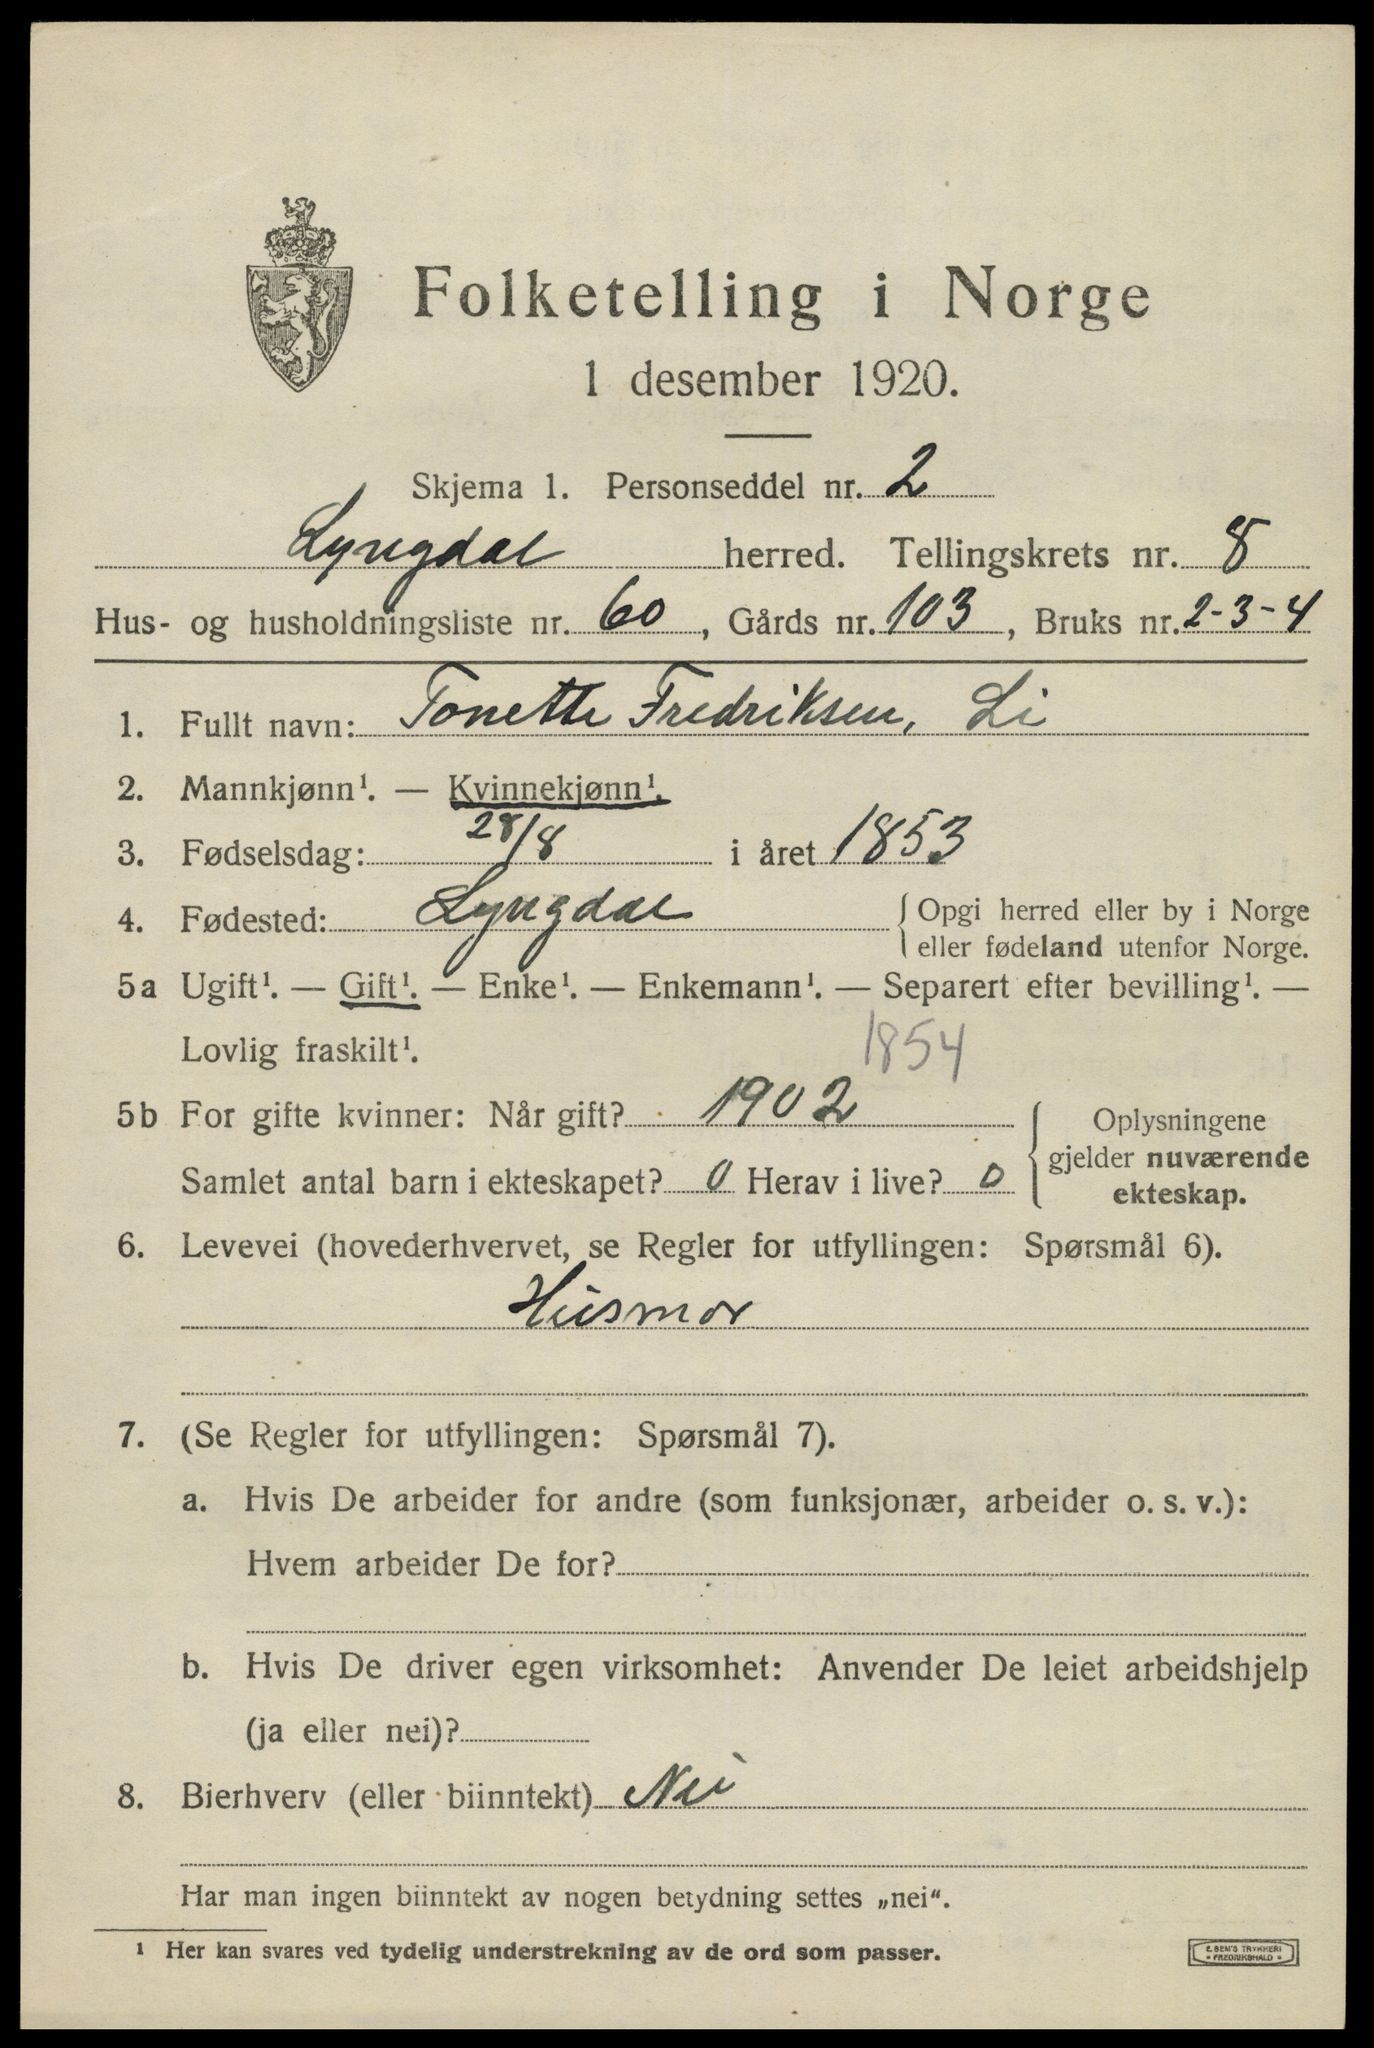 Folketelling i Norge
1 desember 1920.
Skjema 1. Personseddel nr. 2
Lyngdal herred. Tellingskrets nr. 8
Hus- og husholdningsliste nr. 60, Gårds nr. 103, Bruks nr. 2-3-4
1. Fullt navn: Tonette Fredriksen, Li
2. Mannkjønn¹. — Kvinnekjønn¹.
3. Fødselsdag: 28/8 i året 1853
4. Fødested: Lyngdal { Opgi herred eller by i Norge
eller fødeland utenfor Norge.
5a Ugift¹. — Gift¹. — Enke¹. — Enkemann¹. — Separert efter bevilling¹. —
Lovlig fraskilt¹. 1854
5b For gifte kvinner: Når gift? 1902 { Oplysningene
gjelder nuværende
Samlet antal barn i ekteskapet? 0 Herav i live? 0 ekteskap.
6. Levevei (hovederhvervet, se Regler for utfyllingen: Spørsmål 6).
Husmor
7. (Se Regler for utfyllingen: Spørsmål 7).
a. Hvis De arbeider for andre (som funksjonær, arbeider o. s. v.):
Hvem arbeider De for?
b. Hvis De driver egen virksomhet: Anvender De leiet arbeidshjelp
(ja eller nei)?
8. Bierhverv (eller biinntekt) Nei
Har man ingen biinntekt av nogen betydning settes „nei“.
¹ Her kan svares ved tydelig understrekning av de ord som passer.
E. SEM'S TRYKKERI
• FREDRIKSHALD •